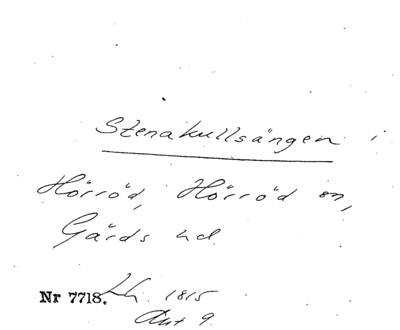 Stenakullsängen i
Hörröd, Hörröd sn,
Gärds hd.
Nr 7718. Lh. 1815
Akt 9.